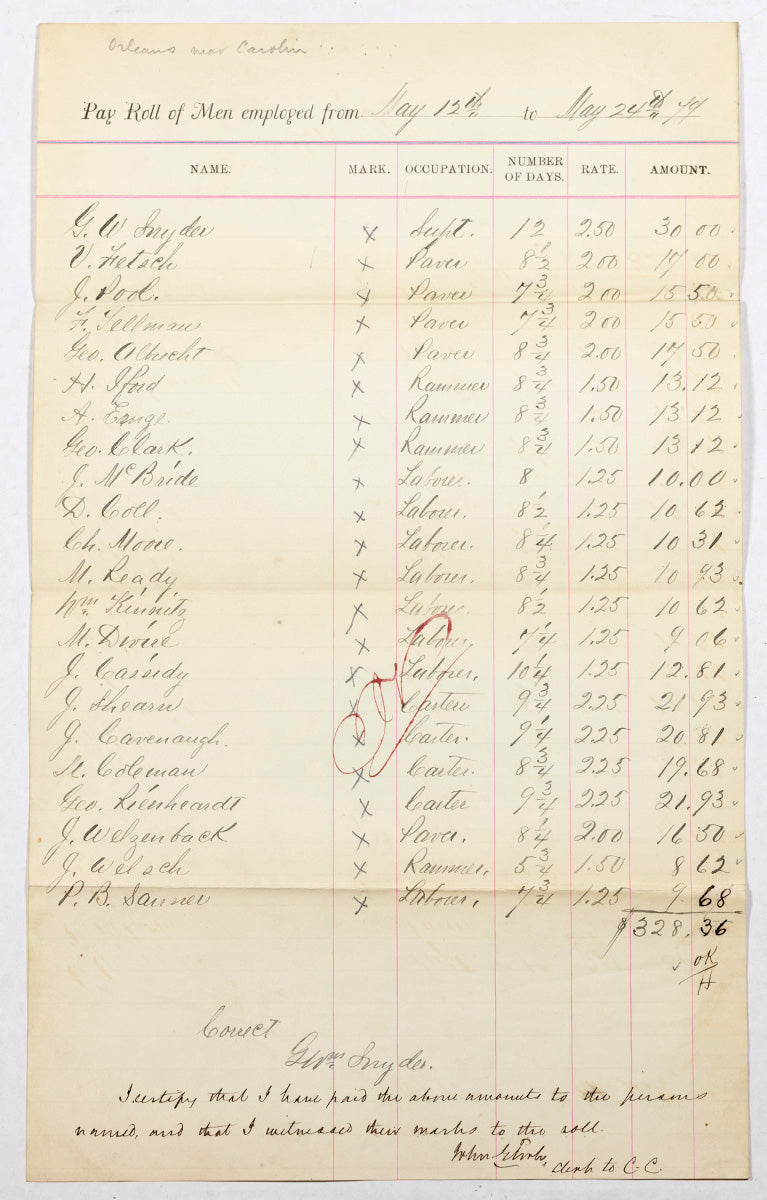 Orleans near Carolin
Pay Roll of Men employed from May 12th to May 24th 79
NAME. MARK. OCCUPATION. NUMBER OF DAYS. RATE. AMOUNT.
G. W Snyder x Supt. 12 2.50 30 00
V. Fetsch x Paver 8 1/2 2 00 17 00
J. Pool. x Paver 7 3/4 2 00 15 50
F. Tellman x Paver 7 3/4 2 00 15 50
Geo. Albrecht x Paver 8 3/4 2.00 17 50
H. Iford x Rammer 8 3/4 1.50 13.12
A. Emge. x Rammer 8 3/4 1.50 13 12
Geo. Clark. x Rammer 8 3/4 1.50 13 12
J. McBride x Laborer. 8 1.25 10.00
D. Coll. x Laborer. 8 1/2 1.25 10 62
Ch. Moore. x Laborer. 8 1/4 1.25 10 31
M. Ready x Laborer. 8 3/4 1.25 10 93
Wm Kinnitz x Laborer 8 1/2 1.25 10 62
M. Divire x Laborer, 7 1/4 1.25 9 06
J. Cassidy x Laborer, 10 1/4 1.25 12.81
J. Shearn x Carter 9 3/4 2.25 21 93
J. Cavenaugh. x Carter. 9 1/4 2.25 20.81
Coleman x Carter. 8 3/4 2.25 19.68
Geo. Rienheardt x Carter 9 3/4 2.25 21.93
J. Welzenback x Paver. 8 1/4 2.00 16 50
J. Welsch x Rammer, 5 3/4 1.50 8 62
P. B. Sanner x Laborer, 7 3/4 1.25 9. 68
$328.36
OK
H
Correct
Geo Wm Snyder.
I certify that I have paid the above amounts to the persons
named, and that I witnessed their marks to the roll.
John clerk to C. C.